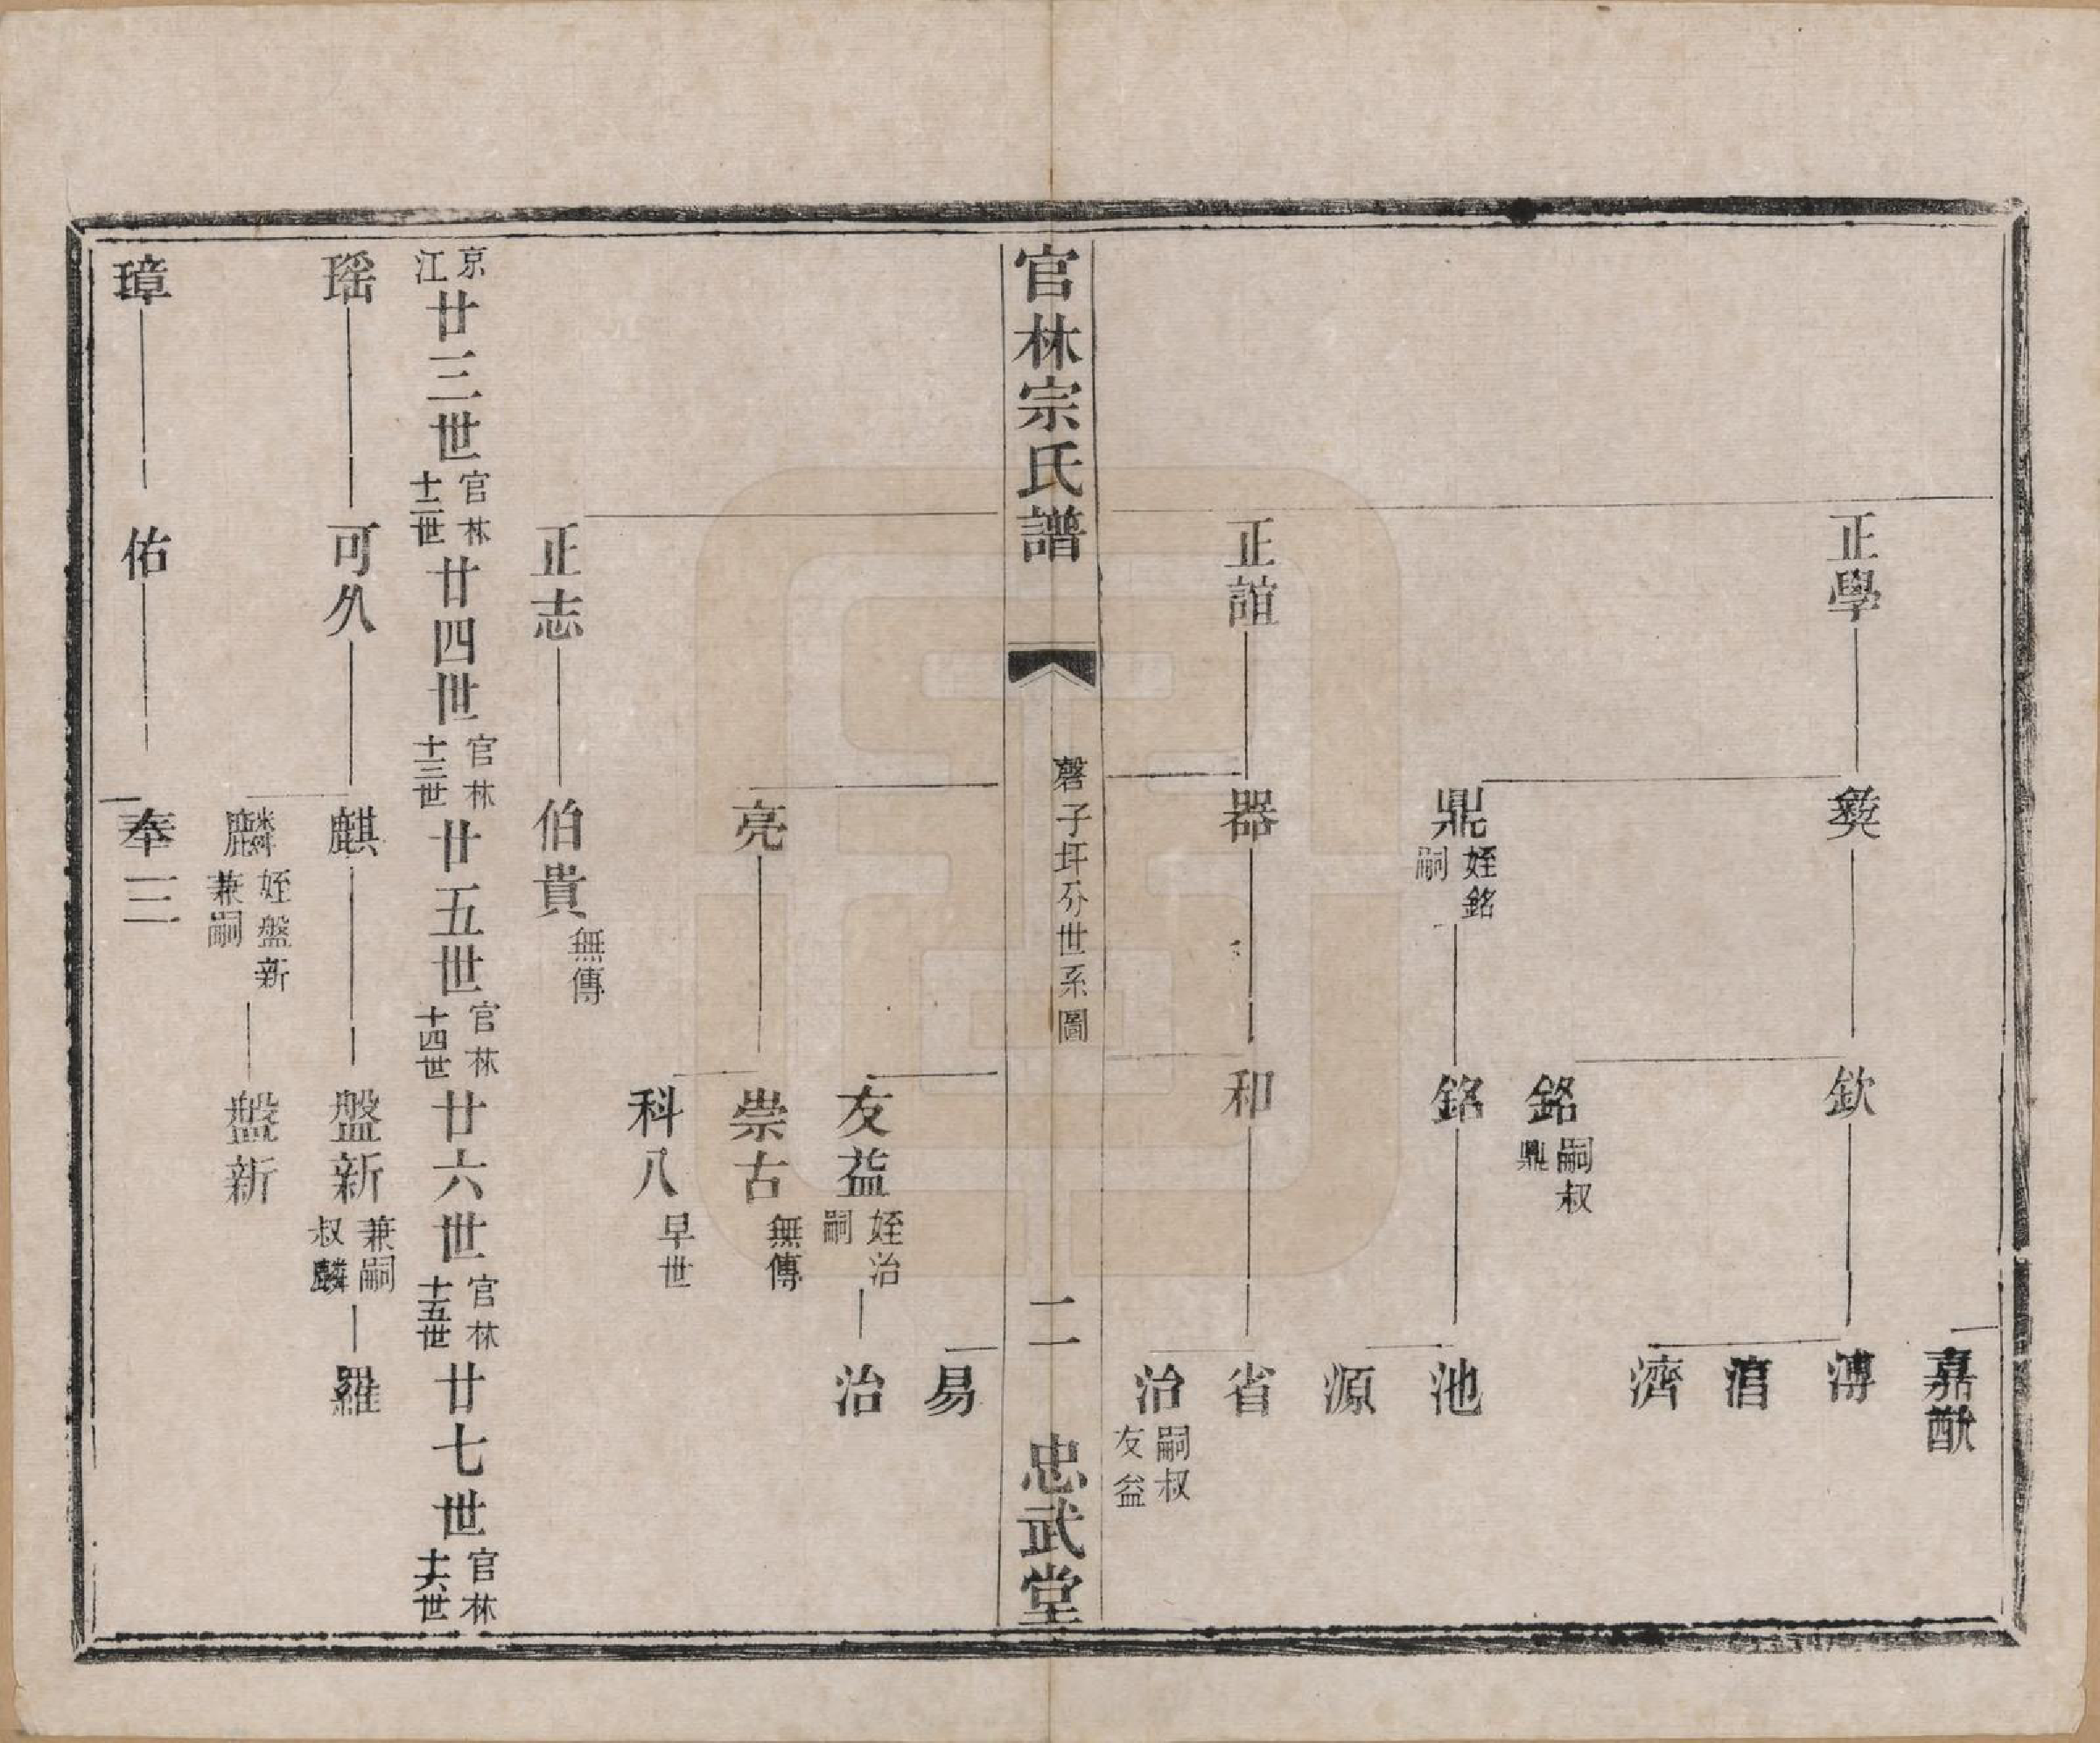 嘉猷
正學
彝
欽
溥
湻
濟
銘
嗣叔
鼎
鼎
姪銘
嗣
銘
池
源
正誼
器
和
省
治
嗣叔
友益
官林宗氏譜
磬子圩分世系圖
二
忠武堂
易
友益
姪治
嗣
治
亮
崇古
無傳
科八
早世
正志
伯貴
無傳
京江廿三世
官林十二世
廿四世
官林十三世
廿五世
官林十四世
廿六世
官林十五世
廿七世
官林十六世
瑶
可久
麒
盤新
兼嗣
叔麟
羅
麟
姪盤新
兼嗣
盤新
璋
佑
奉三